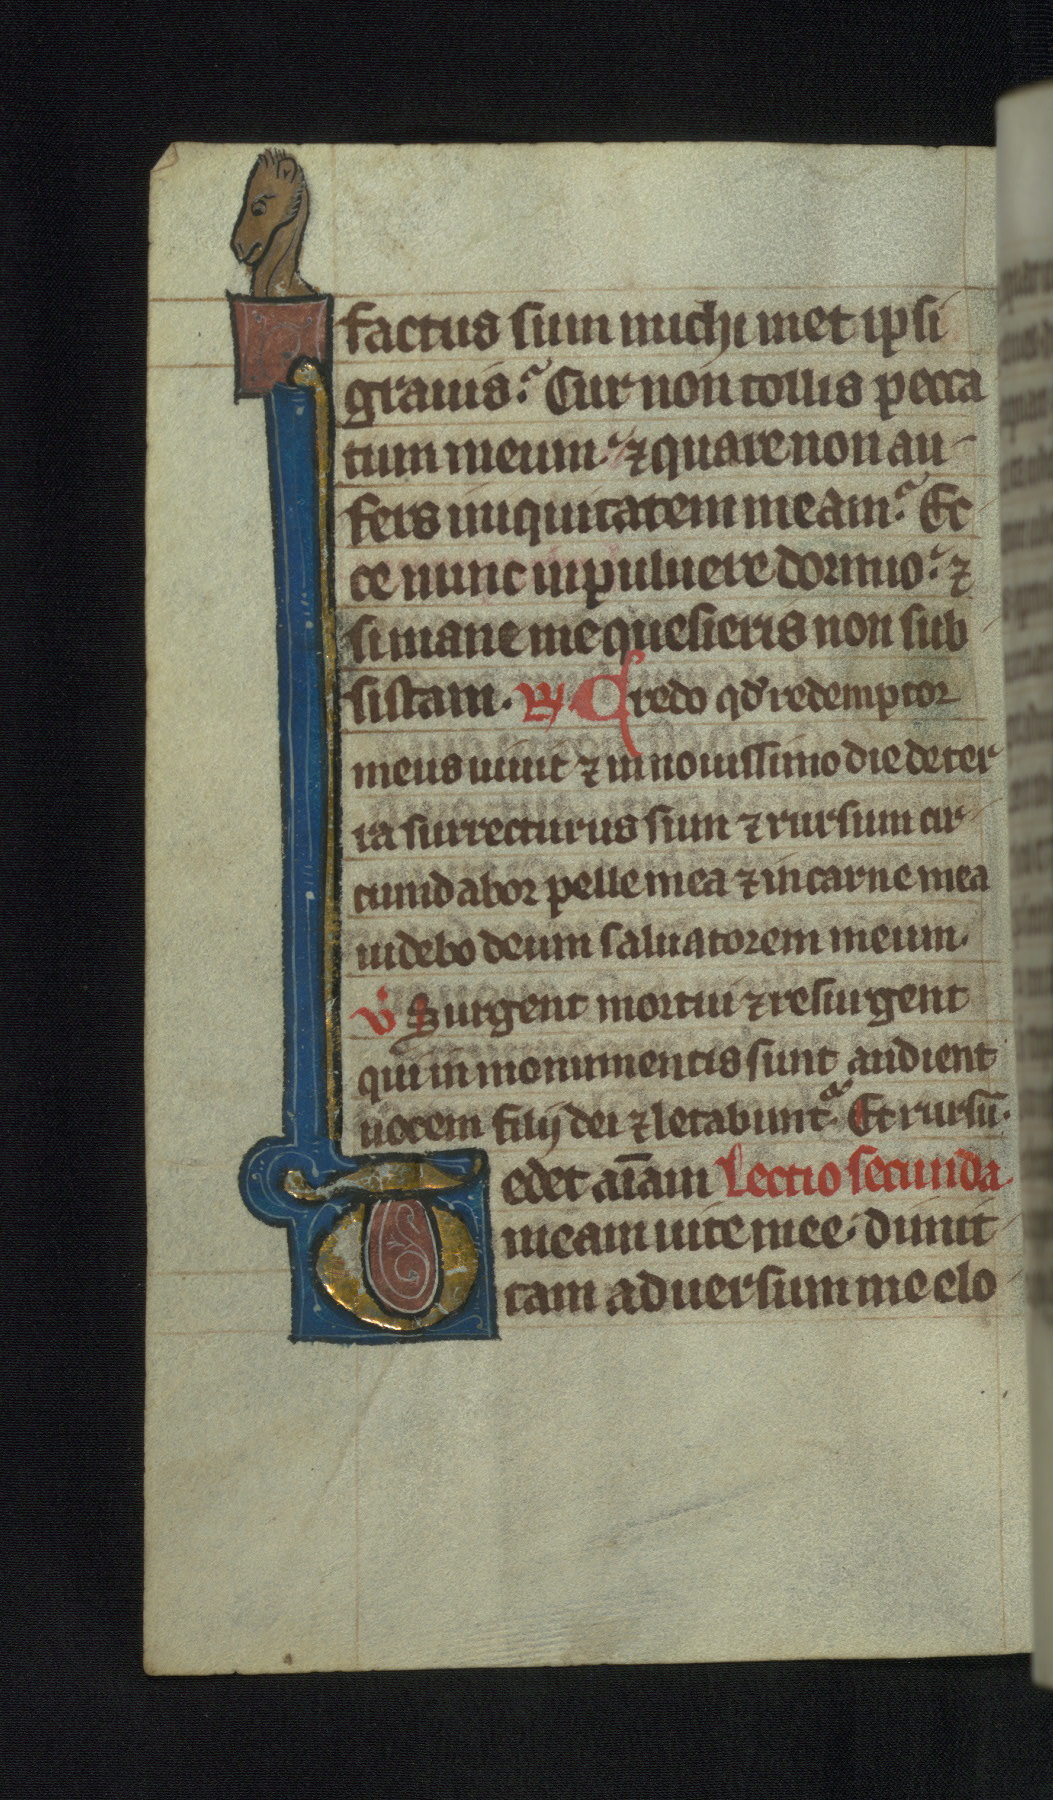 factus sum michi met ipsi
grauis. Cur non tollis pecca
tum meum. ⁊ quare non au-
fers iniquitatem meam. Ec
ce nunc in puluere dormio. ⁊
si mane me quesieris non sub
sistam. ℟ Credo qd̛ redemptor
meus uiuit ⁊ in nouissimo die de ter
ra surrecturus sum ⁊ rursum cir
cumdabor pelle mea ⁊ in carne mea
uidebo deum saluatorem meum.
v̓ Surgent mortui ⁊ resurgent
qui in monumentis sunt audient
uocem filij dei ⁊ letabunt᷑. Et rursū.
Tedet aīam Lectio secunda
meam uite mee. dimit
tam aduersum me elo